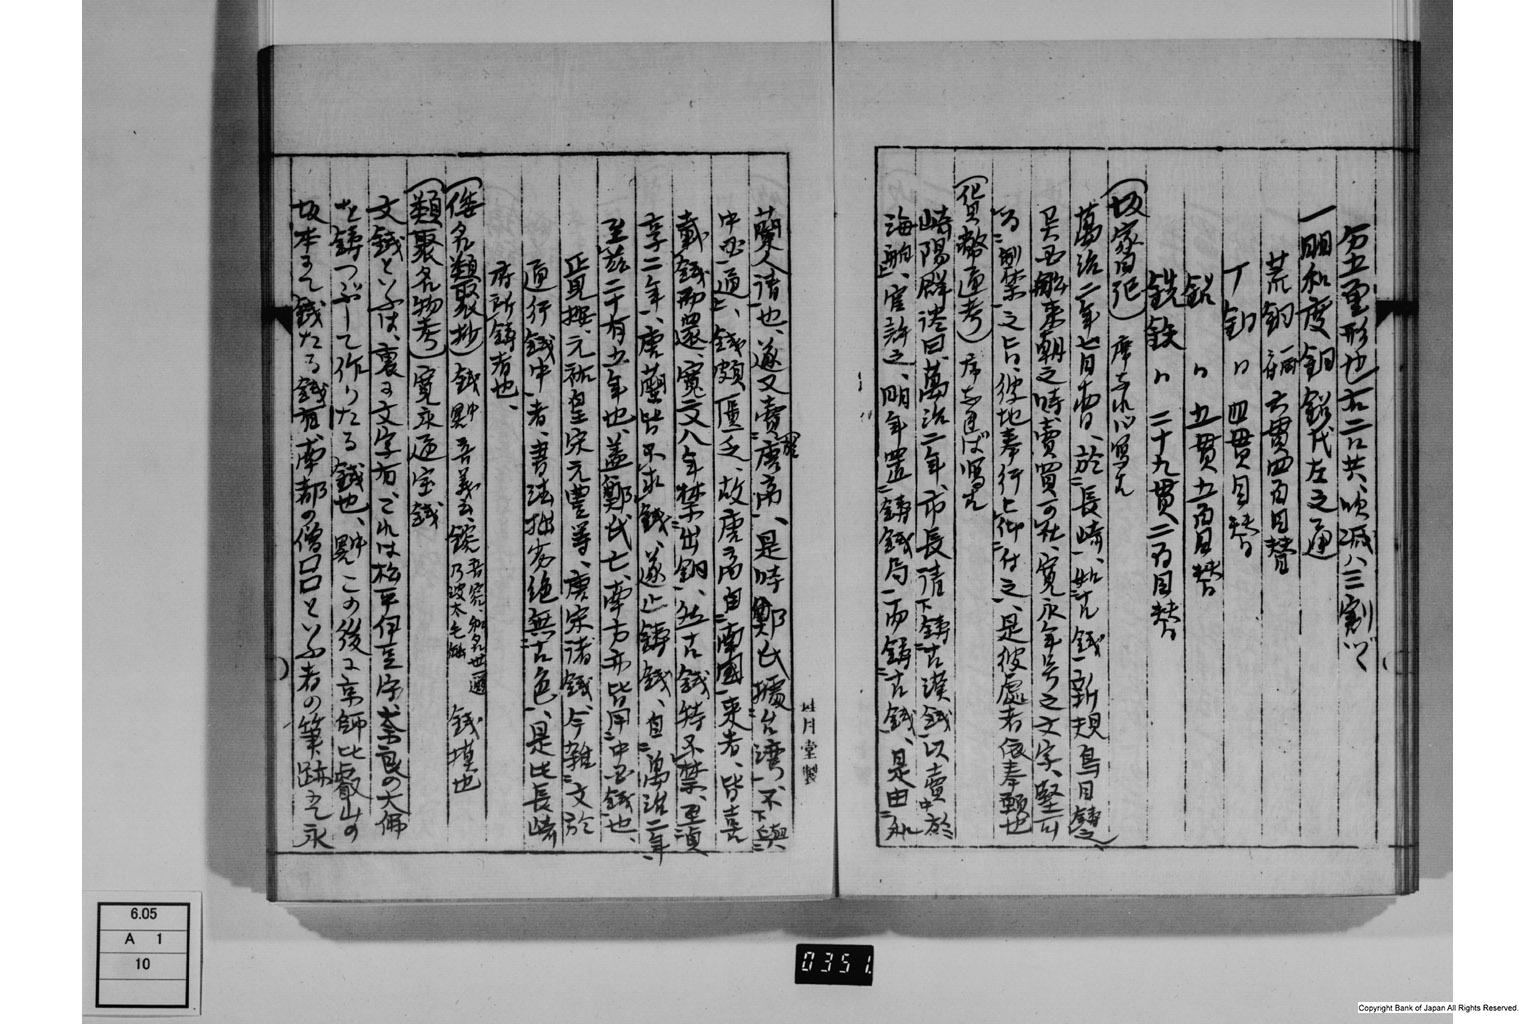 分五厘形也右二口共吹減八三割ツ
一明和度銅鉛代左之通
荒銅一桶六貫四百目替
丁銅〃四貫目替
鉛〃五貫五百目替
銑鉄〃二十九貫二百目替
(坂家旧記)
萬治二年七月 於長崎 如古銭新規鳥目鋳之
呉国船来朝之時賣買可仕 寛永年号之文字堅可
為制禁之旨、彼地奉行江仰付之、是彼處者依奉願也
(貨幣通考)
崎陽群談曰、萬治二年、市長請鋳古漢銭以賣中於
海舶、官許之、明年置鋳銭局而鋳古銭、是由
蘭人請也、遂又賣唐商、是時鄭氏據台湾、不與
中国通、銭頗匱乏、故唐商自南国来者、皆喜
載銭而還、寛文八年禁出銅、然古銭特不禁、至貞
享二年、唐蘭皆不求銭、遂止鋳銭、自萬治二年
至茲二十有五年也、蓋鄭氏亡、南方亦皆用中国銭也、
正見撰、元祐皇宋元豊等、唐宋諸銭、今雜文於
通行銭中者、書法拙劣絶無古色、是比長崎
府所鋳者也、
(倭名類聚抄) 銭 銭模也
(類聚名物考) 寛永通宝銭
文銭といふは、裏に文字有、これは松平伊豆守、奈良の大佛
を鋳つぶして作りたる銭也、この後に京師比叡山の
坂本にて銭たる銭有、南都の僧口口といふ者の筆跡にて永
廿月堂製
0351.
6.05
A 1
10
Copyright Bank of Japan All Rights Reserved.